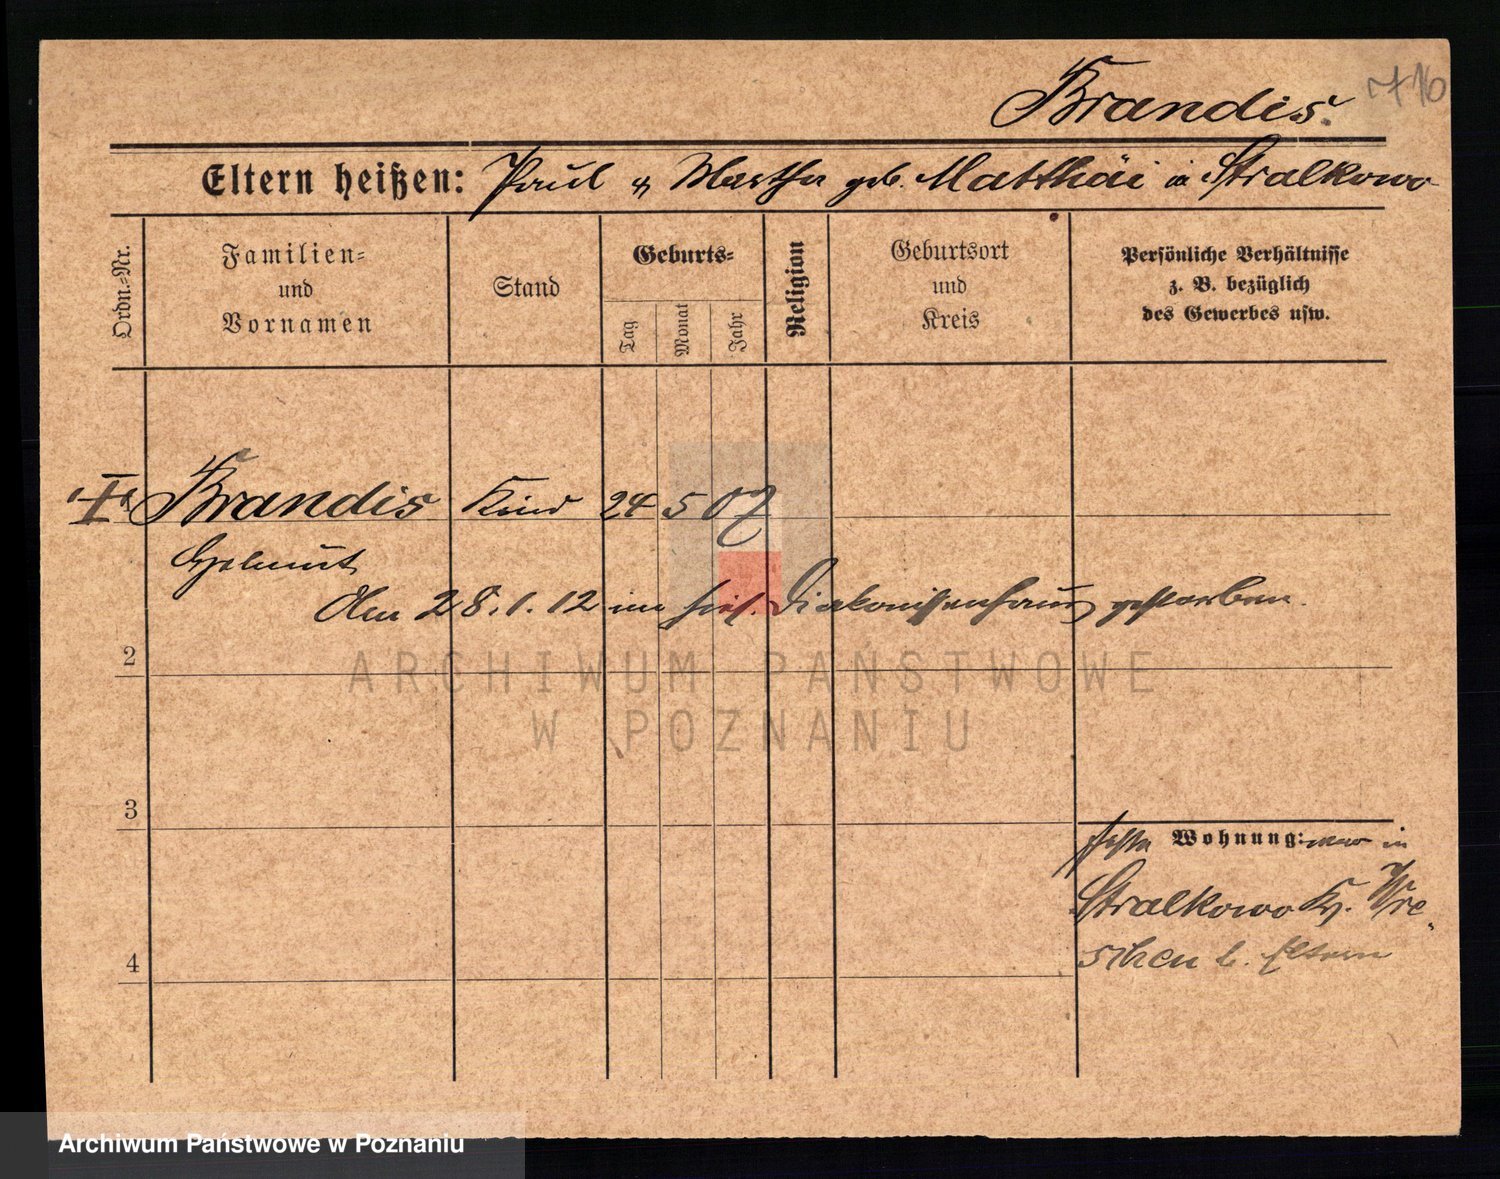 Brandis.
710
Eltern heißen: Paul u Martha geb. Matthäi in Stralkowo
Ordn.-Nr.
Familien-
und
Vornamen
Stand
Geburts-
Tag
Monat
Jahr
Religion
Geburtsort
und
Kreis
Persönliche Verhältnisse
z. B. bezüglich
des Gewerbes usw.
Brandis Kind 24 5 07
Helmut
Am 28.1.12 im hies. Diakonissenhaus gestorben.
2
3
4
feste Wohnung: war in
Stralkowo Kr. Wre-
schen b. Eltern
ARCHIWUM PAŃSTWOWE
W POZNANIU
Archiwum Państwowe w Poznaniu